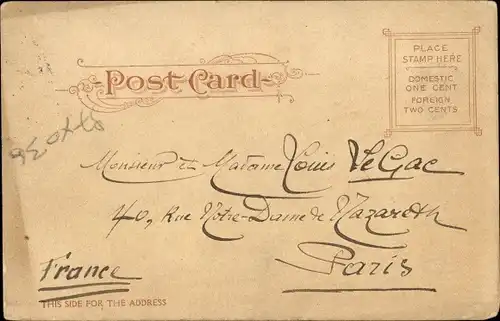 Post Card
PLACE
STAMP HERE
DOMESTIC
ONE CENT
FOREIGN
TWO CENTS
Monsieur et Madame Louis Le Gac
40, Rue Notre-Dame de Nazareth
Paris
France
THIS SIDE FOR THE ADDRESS